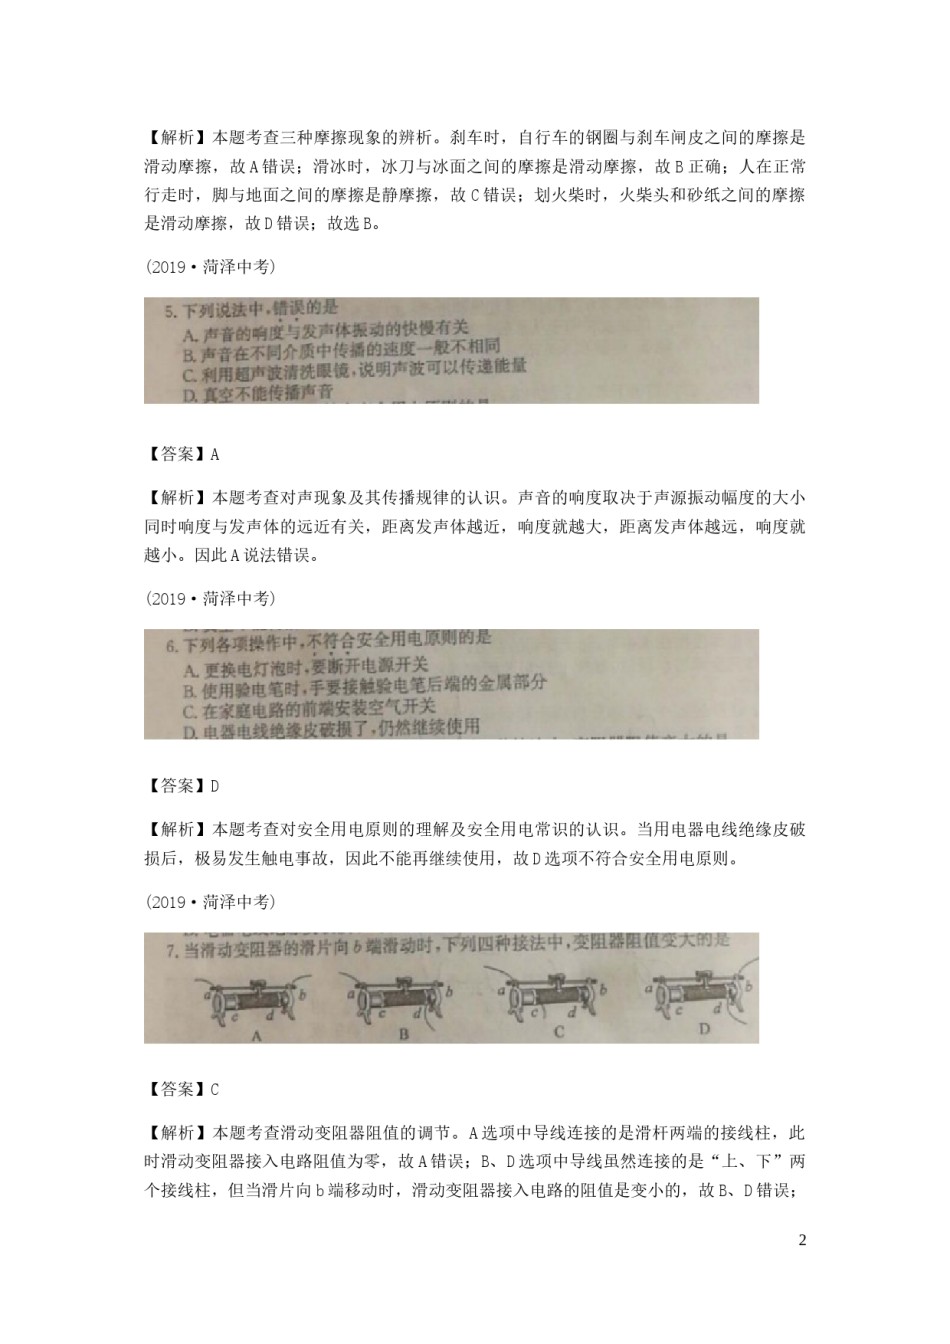 【解析】本题考查三种摩擦现象的辨析。刹车时，自行车的钢圈与刹车闸皮之间的摩擦是
滑动摩擦，故 A 错误；滑冰时，冰刀与冰面之间的摩擦是滑动摩擦，故 B 正确；人在正常
行走时，脚与地面之间的摩擦是静摩擦，故 C 错误；划火柴时，火柴头和砂纸之间的摩擦
是滑动摩擦，故 D 错误；故选 B。
(2019·菏泽中考)
5. 下列说法中,错误的是
A. 声音的响度与发声体振动的快慢有关
B. 声音在不同介质中传播的速度一般不相同
C. 利用超声波清洗眼镜,说明声波可以传递能量
D. 真空不能传播声音
【答案】A
【解析】本题考查对声现象及其传播规律的认识。声音的响度取决于声源振动幅度的大小
同时响度与发声体的远近有关，距离发声体越近，响度就越大，距离发声体越远，响度就
越小。因此 A 说法错误。
(2019·菏泽中考)
6. 下列各项操作中,不符合安全用电原则的是
A. 更换电灯泡时,要断开电源开关
B. 使用验电笔时,手要接触验电笔后端的金属部分
C. 在家庭电路的前端安装空气开关
D. 电器电线绝缘皮破损了,仍然继续使用
【答案】D
【解析】本题考查对安全用电原则的理解及安全用电常识的认识。当用电器电线绝缘皮破
损后，极易发生触电事故，因此不能再继续使用，故 D 选项不符合安全用电原则。
(2019·菏泽中考)
7. 当滑动变阻器的滑片向 b 端滑动时,下列四种接法中,变阻器阻值变大的是
a b a b a b a b
c d c d c d c d
A B C D
【答案】C
【解析】本题考查滑动变阻器阻值的调节。A 选项中导线连接的是滑杆两端的接线柱，此
时滑动变阻器接入电路阻值为零，故 A 错误；B、D 选项中导线虽然连接的是“上、下”两
个接线柱，但当滑片向 b 端移动时，滑动变阻器接入电路的阻值是变小的，故 B、D 错误；
2